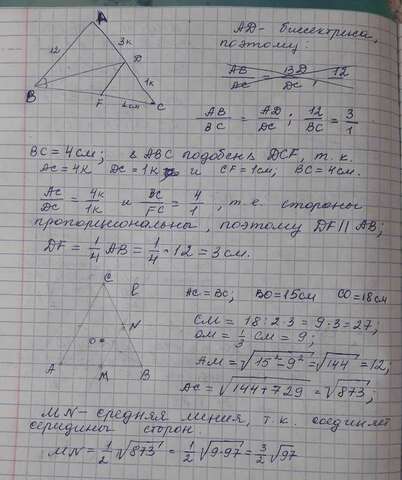 A
12
3к
D
1к
B
F
1см
C
AD - биссектриса,
поэтому:
AB/AC = BD/DC, 12
AB/BC = AD/DC; 12/BC = 3/1
BC = 4см; △ ABC подобен DCF, т.к.
AC = 4к DC = 1к и CF = 1см, BC = 4см.
AC/DC = 4к/1к и BC/FC = 4/1, т.е. стороны
пропорциональны, поэтому DF || AB;
DF = 1/4 AB = 1/4 · 12 = 3см.
C
N
O
A
M
B
AC = BC; BO = 15см CO = 18см
CM = 18 : 2 · 3 = 9 · 3 = 27;
OM = 1/3 CM = 9;
AM = √15² - 9² = √144 = 12;
AC = √144 + 729 = √873;
MN - средняя линия, т.к. соединяет
середины сторон.
MN = 1/2 √873 = 1/2 √9·97 = 3/2 √97